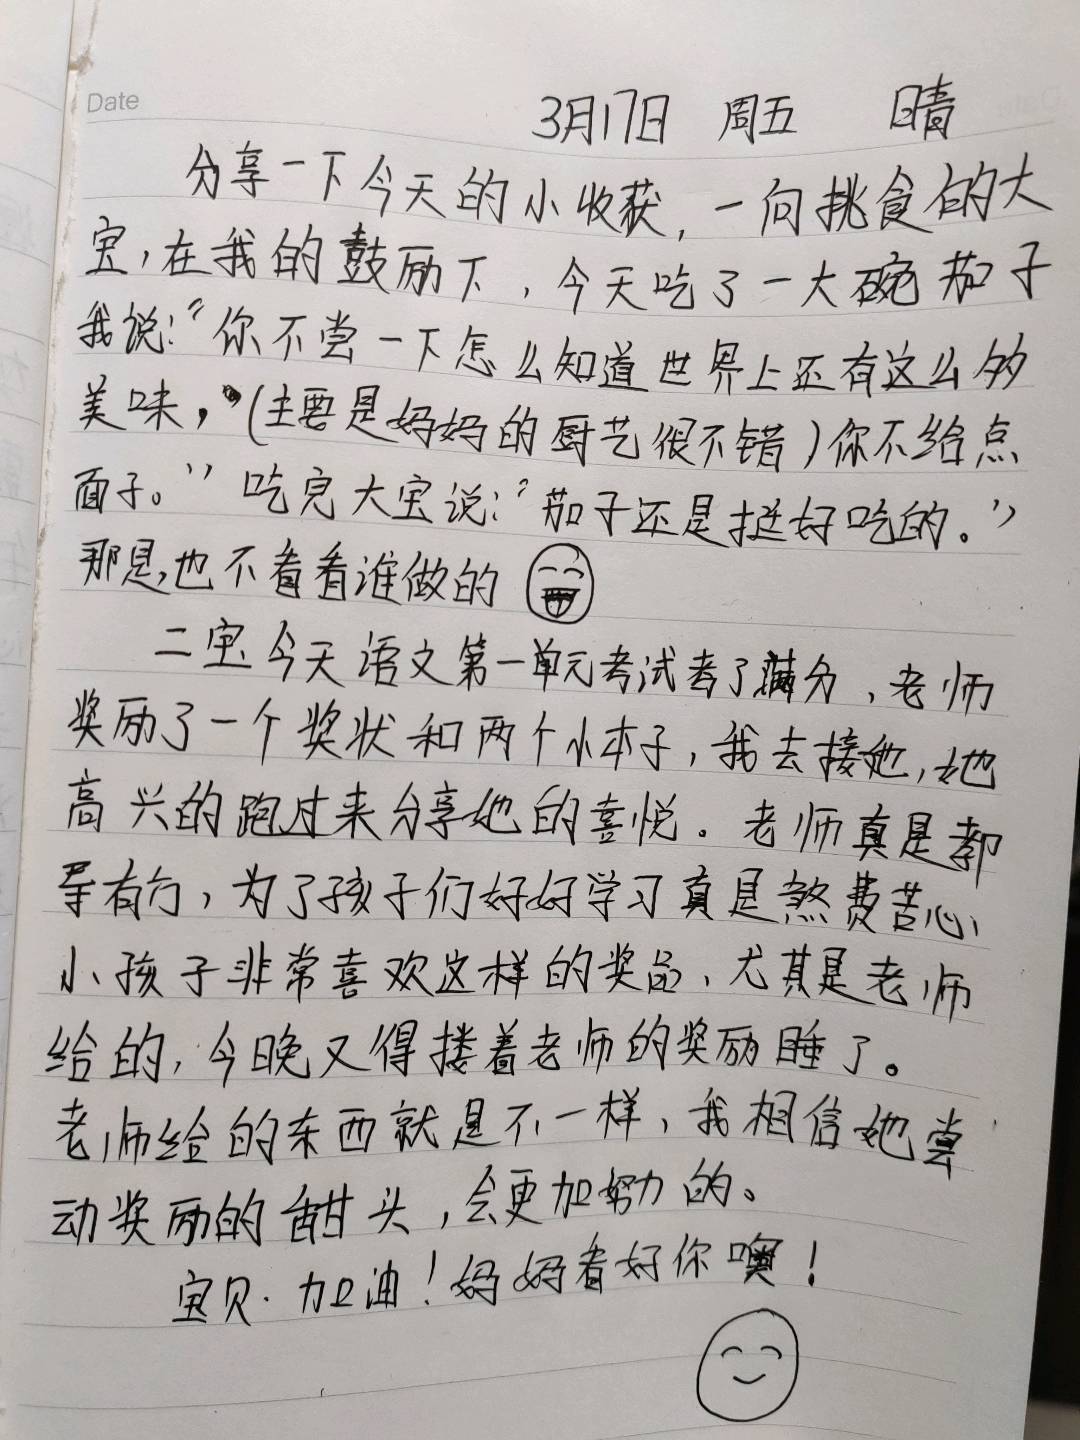 Date
3月17日 周五 晴
分享一下今天的小收获,一向挑食的大
宝,在我的鼓励下,今天吃了一大碗茄子
我说:"你不尝一下怎么知道世界上还有这么多
美味,(主要是妈妈的厨艺很不错)你不给点
面子。"吃完大宝说:"茄子还是挺好吃的。"
那是,也不看看谁做的
二宝今天语文第一单元考试考了满分,老师
奖励了一个奖状和两个小本子,我去接她,她
高兴的跑过来分享她的喜悦。老师真是教
导有方,为了孩子们好好学习真是煞费苦心,
小孩子非常喜欢这样的奖品,尤其是老师
给的,今晚又得搂着老师的奖励睡了。
老师给的东西就是不一样,我相信她尝
动奖励的甜头,会更加努力的。
宝贝.加油!妈妈看好你噢!